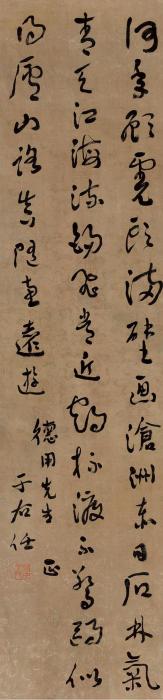 何年顧虎頭滿壁画滄洲赤日石林氣
青天江海流錫飛常近鶴杯渡不驚鷗似
得廬山路真隨惠遠遊
德用先生正
于右任